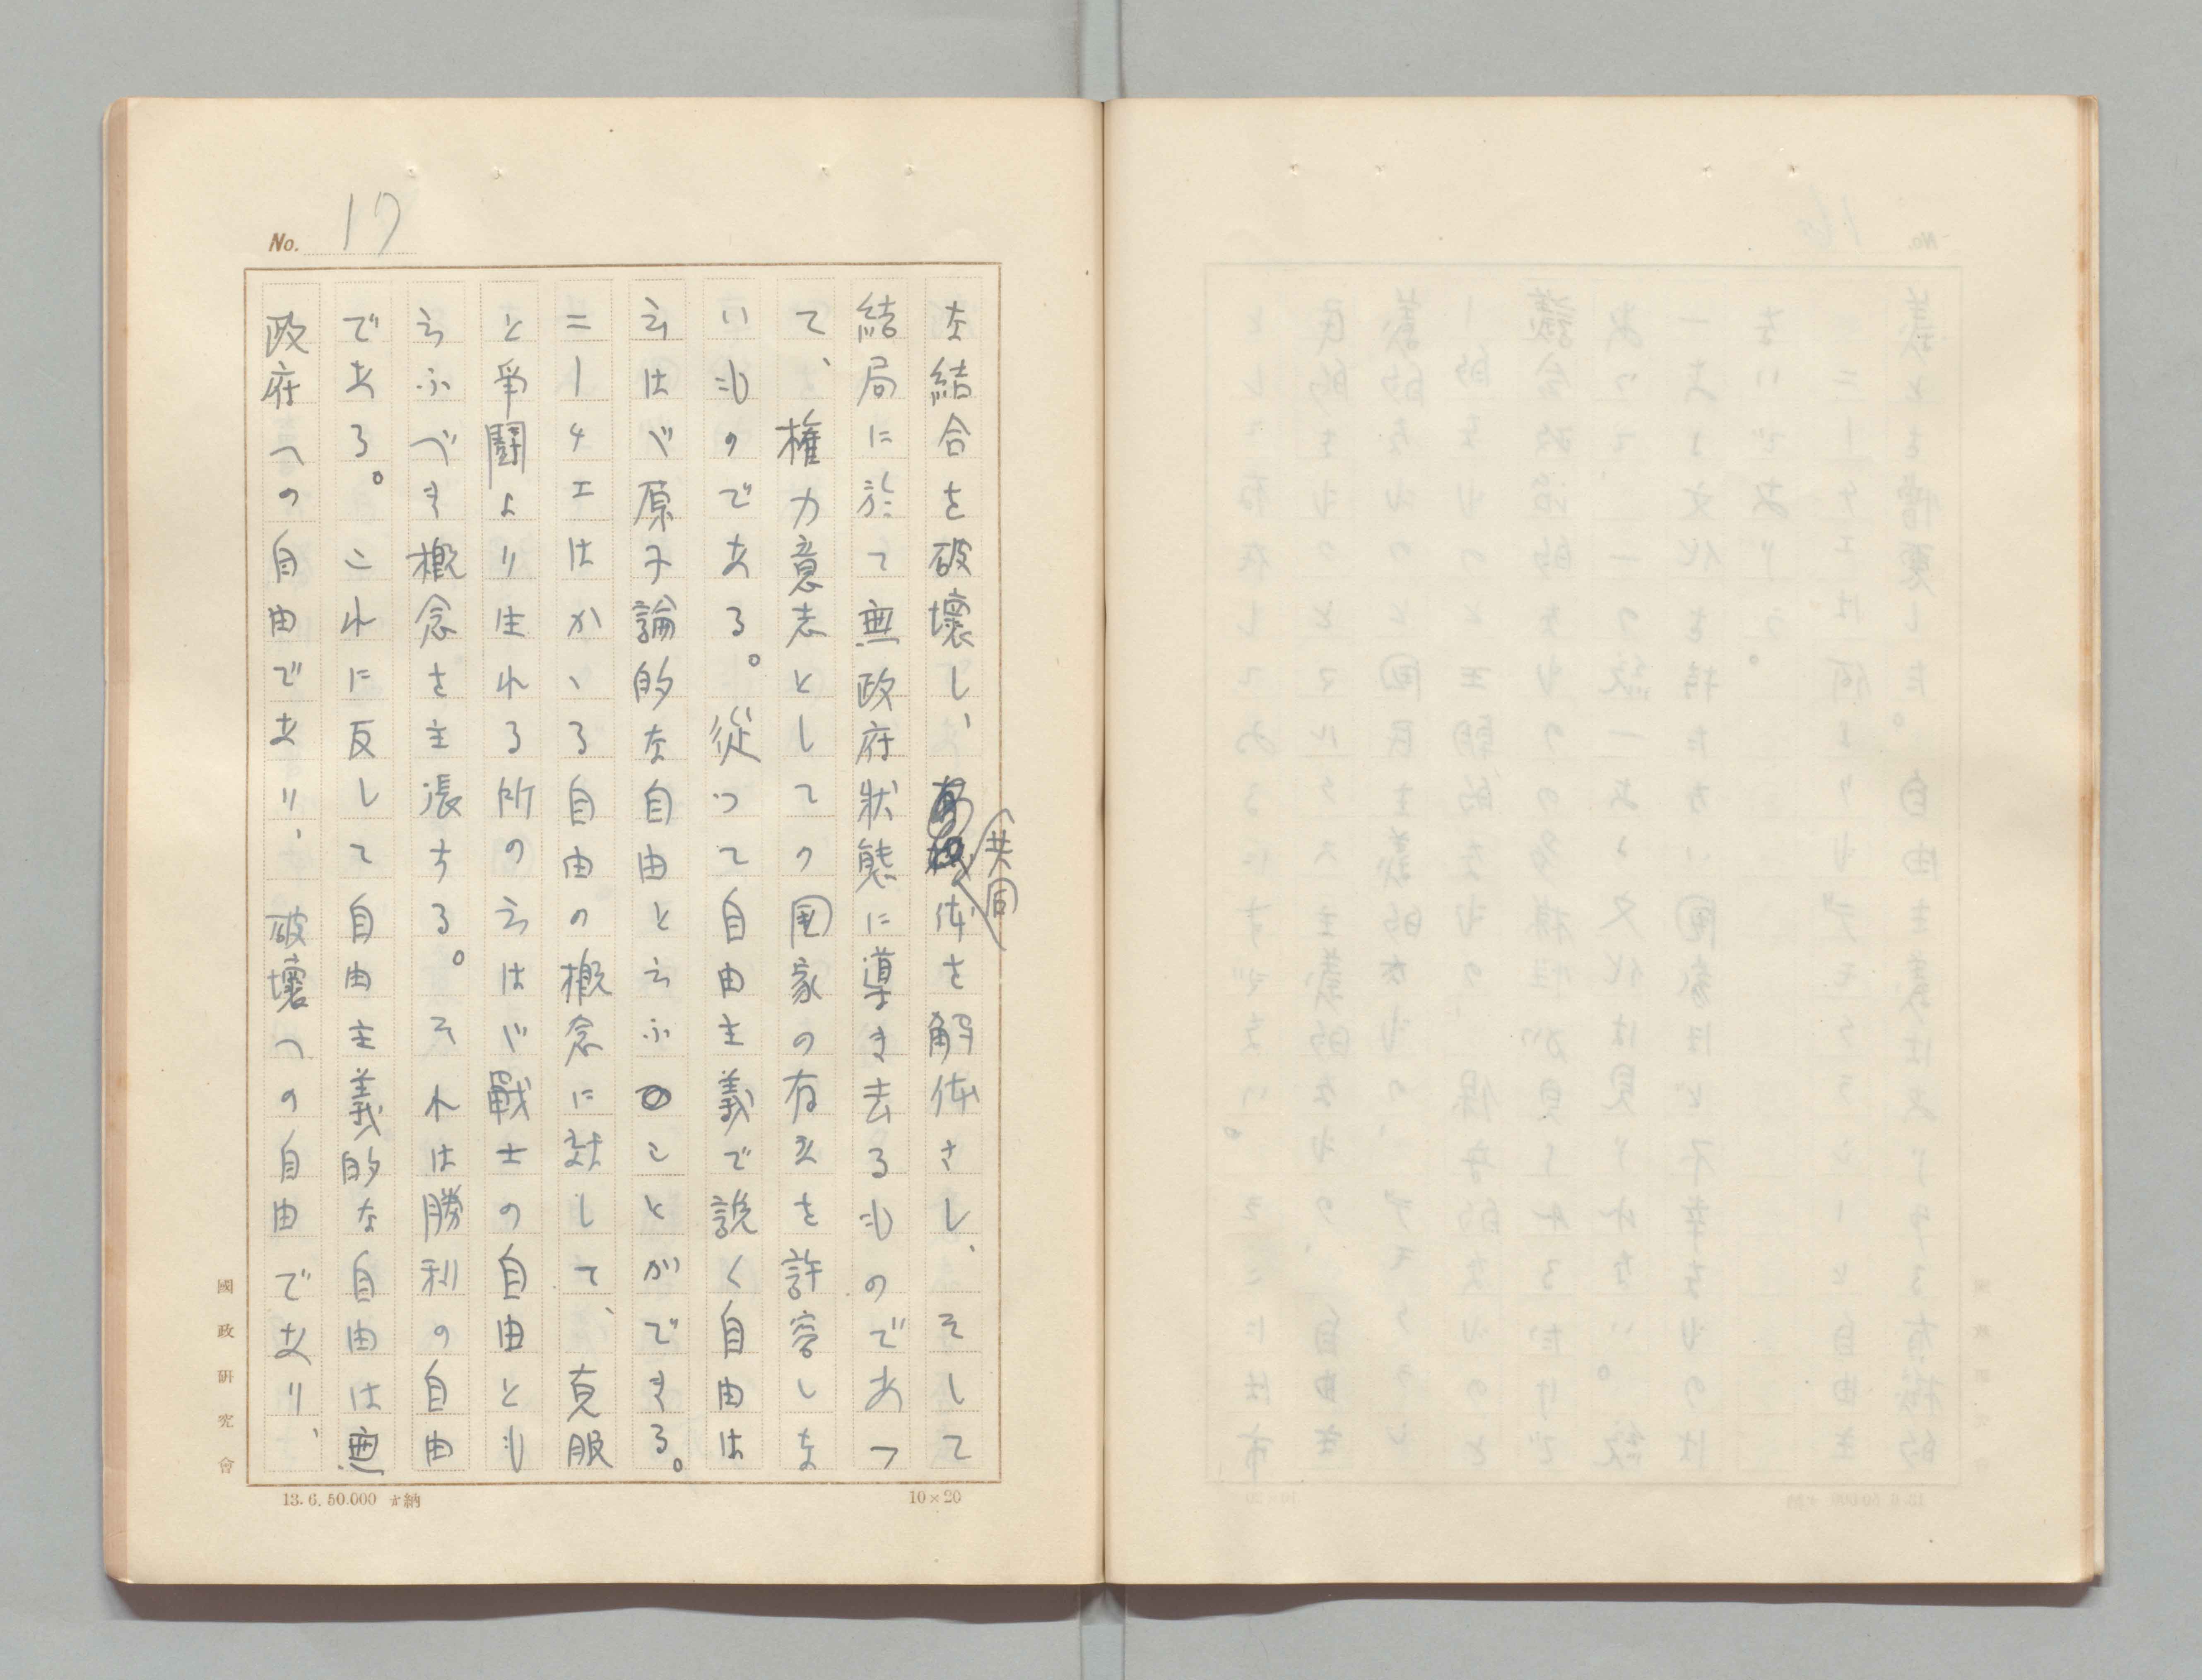 No. 17
な結合を破壊し、共同体を解体さし、そして
結局に於て無政府状態に導き去るものであつ
て、権力意志としての国家の存在を許容しな
いものである。従つて自由主義で説く自由は
云はゞ原子論的な自由と云ふことができる。
ニーチエはかゝる自由の概念に対して、克服
と爭闘より生れる所の云はゞ戰士の自由とも
云ふべき概念を主張する。それは勝利の自由
である。これに反して自由主義的な自由は無
政府への自由であり、破壊への自由であり、
國政研究會
13. 6. 50.000
10×20